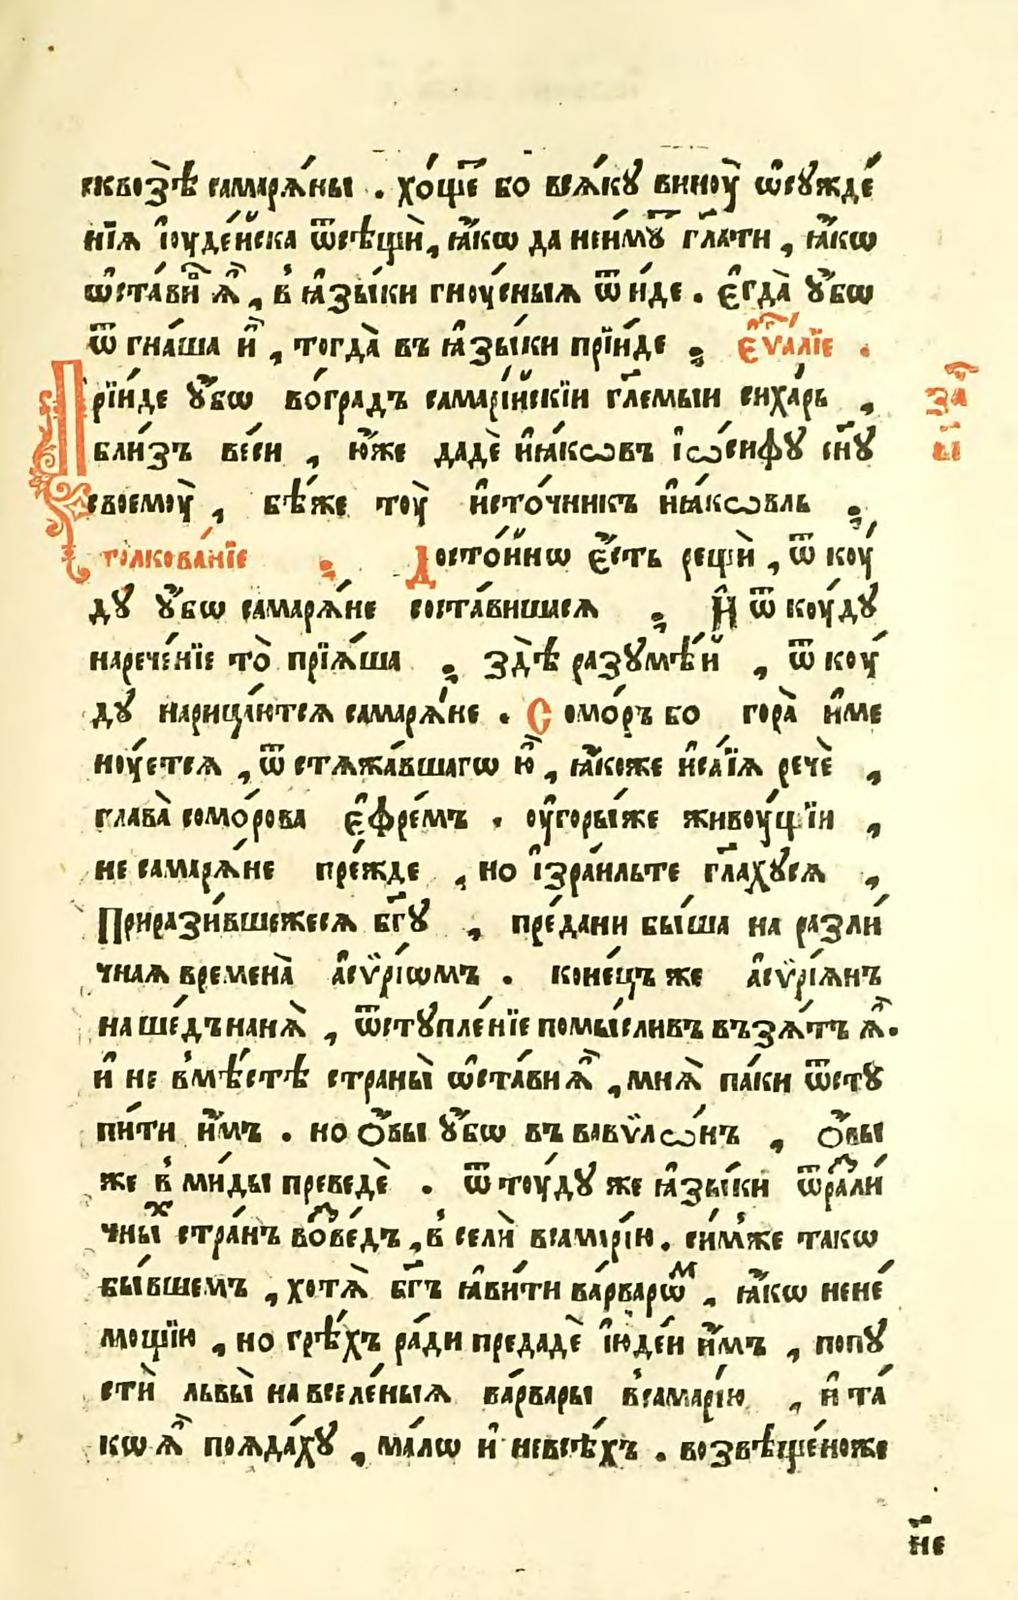 сквозѣ̀ самарѧ́ны . хо́щеⷮ бо всѧ́кꙋ виноу̀ ѡ҆сꙋжде́
нїѧ і҆оуде́йска ѿсѣщѝ, ꙗ҆́кѡ да неи́мꙋⷮ гл҃ати , ꙗ҆́кѡ
ѡ҆ста́виⷡ ѧ҆̀ , в̾ ꙗ҆зы́ки гноу́сныѧ ѿи́де . є҆гда̀ ᲂу҆́бѡ
ѿгна́ша и҆̀ , тогда̀ въ ꙗ҆зы́ки прїи́де ; є҆ѵⷢ҇а́лїе .
Прїи́де ᲂу҆́бѡ во́градъ самарі́йскїи гл҃емыи сиха́рь ,
за҃ⷱ
бли́зъ ве́си , ю҆́же дадѐ и҆ꙗ́кѡвъ і҆ѡ́сифꙋ сн҃ꙋ
в҃і
своемоу̀ , бѣ́же тоу̀ и҆сто́чникъ и҆ꙗ́кѡвль ;
толкова́нїе ; Досто́йнѡ є҆́сть рещѝ , ѿ коу́
дꙋ ᲂу҆́бѡ самарѧ́не соста́вишасѧ ; И҆ ѿ коу́дꙋ
нарече́нїе то̀ прїѧ́ша ; здѣ̀ разꙋмѣ́й , ѿ коу́
дꙋ нарица́ютсѧ самарѧ́не . Сомо́ръ бо гора̀ и҆ме
ноу́етсѧ , ѿ стѧжа́вшагѡ ю҆̀ , ꙗ҆́коже и҆са́їѧ речѐ ,
глава̀ сомо́рова є҆фре́мъ . ᲂу҆горы́же живоу́щїи ,
не самарѧ́не пре́жде , но і҆зра́ильте гл҃ахꙋсѧ ,
Приразиⷡ҇шежесѧ бг҃ꙋ , пре́дани бы́ша на разли́
чнаѧ времена̀ а҆сѷ́рїѡмъ . коне́цъ же а҆сѷ́рїѧнъ
наше́дъ нанѧ̀ , ѿстꙋпле́нїе помы́сливъ възѧ́тъ ѧ҆̀ .
и҆ не в̾мѣ́стѣ страны̀ ѡ҆ста́ви ѧ҆̀ , мнѧ̀ па́ки ѿстꙋ
пи́ти и҆̀мъ . но ѻ҆́вы ᲂу҆́бѡ въ вавѷлѡ́нъ , ѻ҆́вы
же в̾ ми́ды преведѐ . ѿтоу́дꙋ же ꙗ҆зы́ки ѿраⷥли́
чныⷯ стра́нъ воⷥве́дъ , в̾селѝ всамарі́ю . си́мже такѡ
бы́вшемъ , хотѧ̀ бг҃ъ ꙗ҆ви́ти ва́рварѡⷨ , ꙗ҆́кѡ нене́
мощїю , но грѣ́хъ ра́ди предадѐ і҆юде́и и҆̀мъ , попꙋ
стѝ львы̀ на вселе́ныѧ ва́рвары в̾самарі́ю , и҆ та́
кѡ ѧ҆̀ поѧда́хꙋ , ма́лѡ и҆ невсѣ́хъ . возвѣще́ноже
не